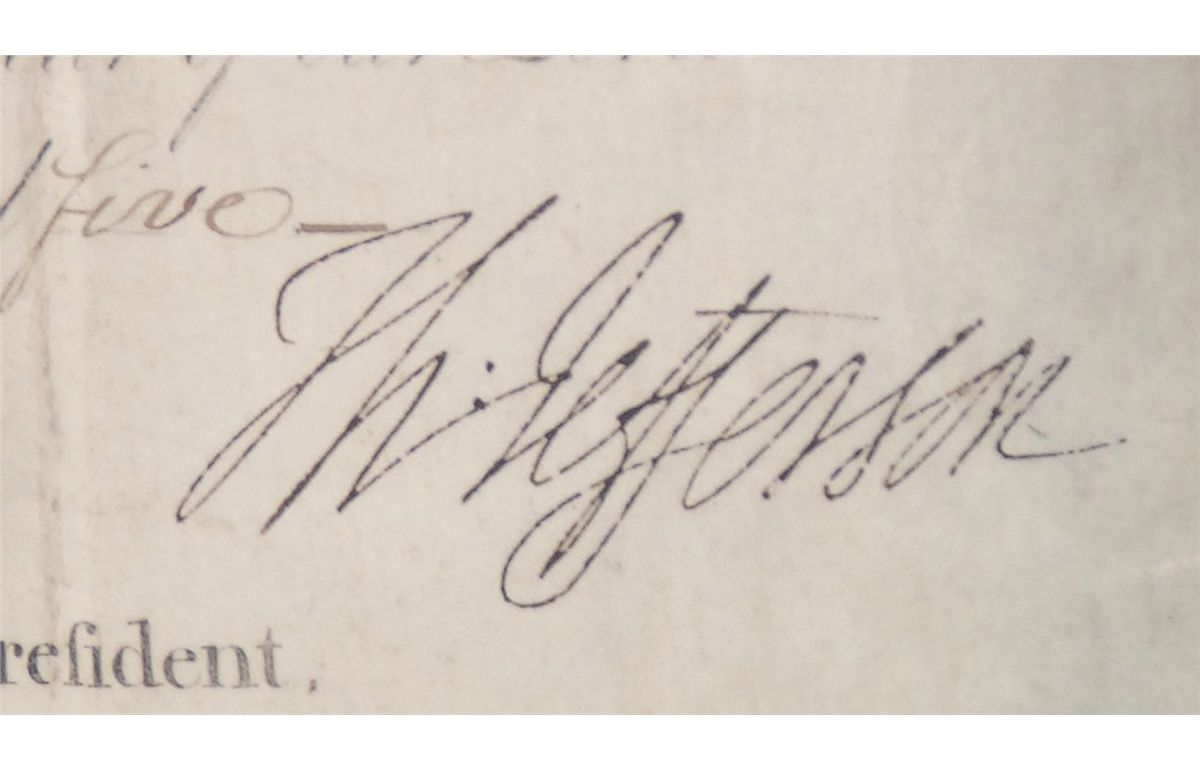 five—
Th: Jefferson
reſident,